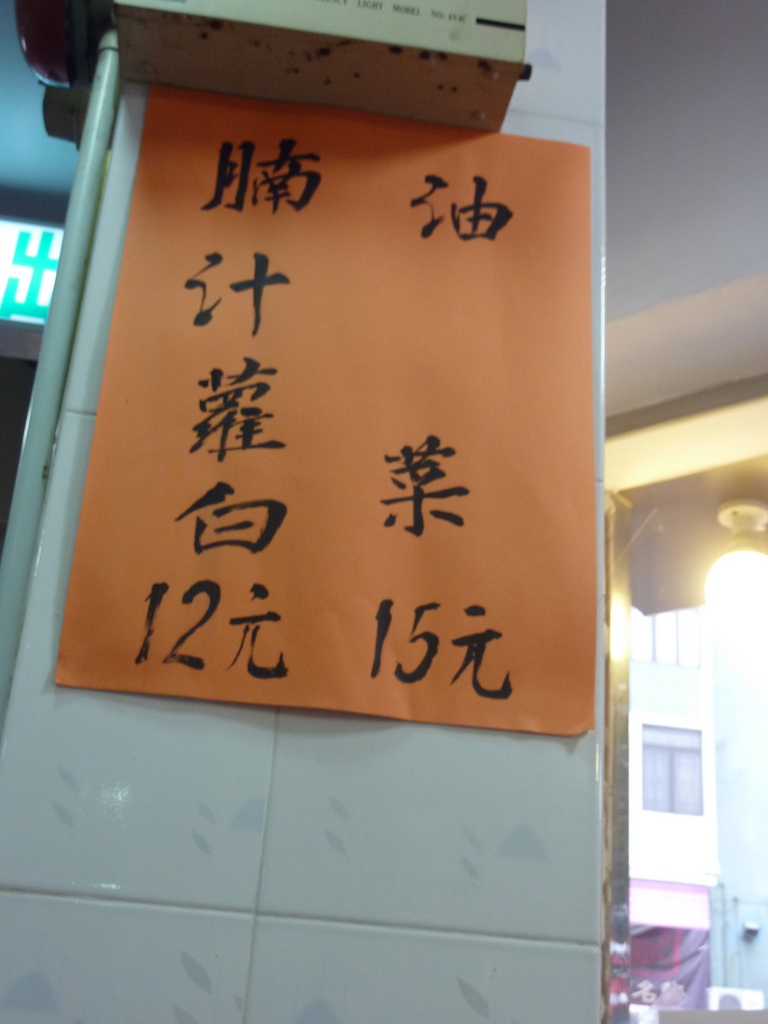 油菜15元
腩汁蘿白12元
LIGHT MODEL NO:
出